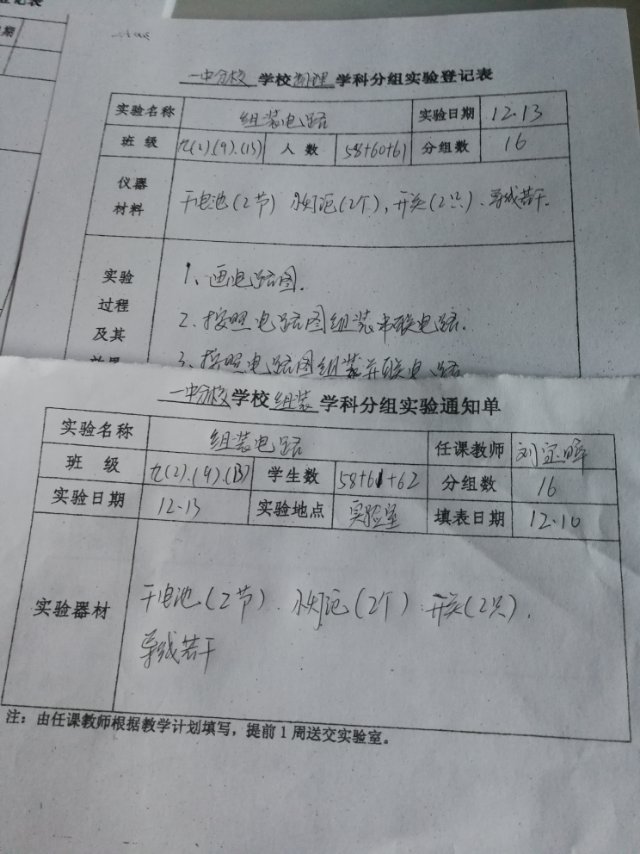 登记表
一中分校 学校 物理 学科分组实验登记表
实验名称 组装电路 实验日期 12.13
班 级 九(2).(9).(13) 人 数 58+60+61 分组数 16
仪器材料 干电池(2节) 小灯泡(2个), 开关(2只)、导线若干.
实验过程及其效果
1、画电路图.
2、按照电路图组装串联电路.
3、按照电路图组装并联电路
一中分校 学校 组装 学科分组实验通知单
实验名称 组装电路 任课教师
班 级 九(2).(9).(13) 学生数 58+61+62 分组数 16
实验日期 12.13 实验地点 实验室 填表日期 12.10
实验器材 干电池(2节). 小灯泡(2个). 开关(2只).
导线若干
注：由任课教师根据教学计划填写，提前1周送交实验室。